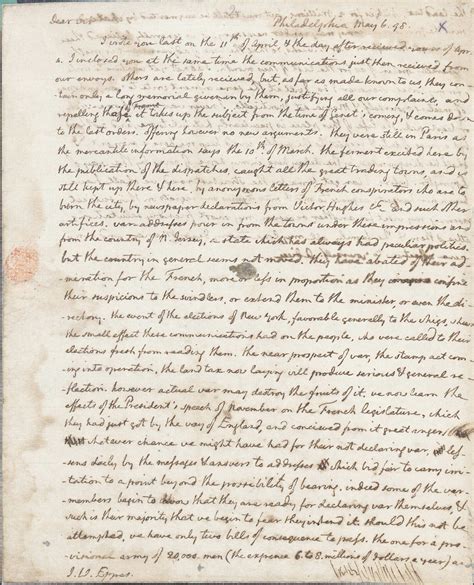 Dear Philadelphia May 6. 98.
I wrote you last on the 11th of April, & the day after received yours of Apr.
I inclosed you at the same time the communications just then received from
our envoys. others are lately recieved, but, as far as made known to us they con-
tain only a long memorial given in by them, justifying all our complaints, and
repelling those of France. it takes up the subject from the time of Genet's coming, & comes down
to the last orders. offering however no new arguments. They were still in Paris as
the mercantile information says the 10th of March. the ferment excited here by
the publication of the dispatches, caught all the great trading towns, and is
still kept up there & here, by anonymous letters of French conspirators who are to
burn the city, by newspaper declarations from Victor Hughes &c. and such other
artifices. war addresses pour in from the towns under these impressions and
from the country of N. Jersey, a state which has always had peculiar politics
but the country in general seems not moved. they have abated of their ad-
miration for the French, more or less in proportion as they confine
their suspicions to the swindlers, or extend them to the minister, or even the di-
rectory. the event of the elections of New York, favorable generally to the whigs, shew
the small effect these communications had on the people, who were called to their
elections fresh from reading them. the near prospect of war, the stamp act com-
ing into operation, the land tax now laying will produce serious & general re-
flection. however actual war may destroy the fruits of it. we now learn the
effects of the President's speech of November on the French legislature, which
they had just got by the way of England, and concieved from it great anger.
whatever chance we might have had for their not declaring war, les-
sens daily by the messages & answers to addresses which bid fair to carry irri-
tation to a point beyond the possibility of bearing. indeed some of the war
members begin to that they are ready for declaring war themselves, &
such is their majority that we begin to fear they intend it. should this not be
attempted, we have only two bills of consequence to pass. the one for a pro-
visional army of 20,000 men (the expence 6. to 8. millions of dollars a year) and
J. W. Eppes.